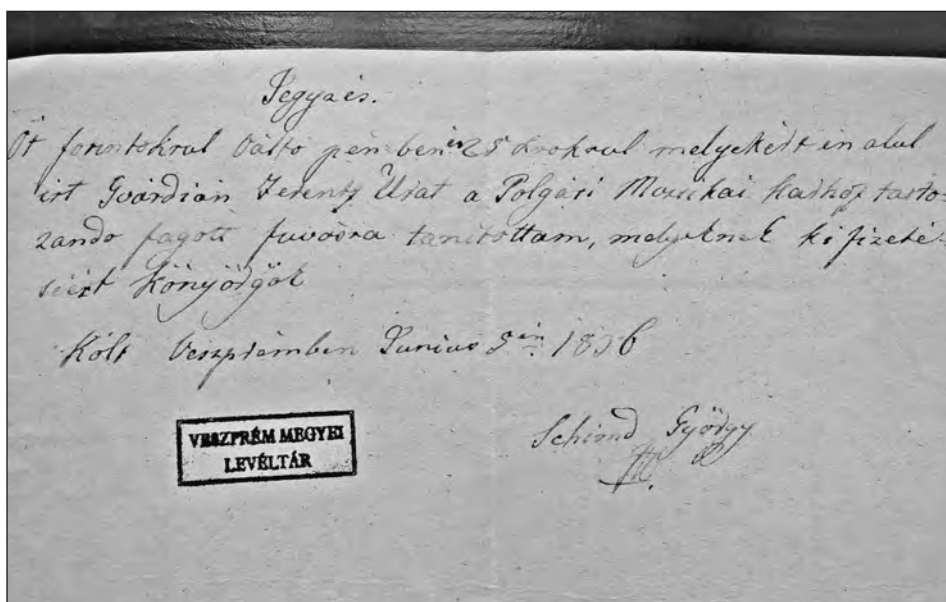 Jegyzés.
Öt forintokrul váltó pénzben és 25 krokrul melyekért én alul
irt Gvárdián Ferentz Urat a Polgári Muzsikai karhoz tarto
zando fagott fuvoóra tanitottam, melyeknek ki fizeté
séért könyörgök
Költ Veszprémben Junius 5én 1836
Schimd György
VESZPRÉM MEGYEI
LEVÉLTÁR